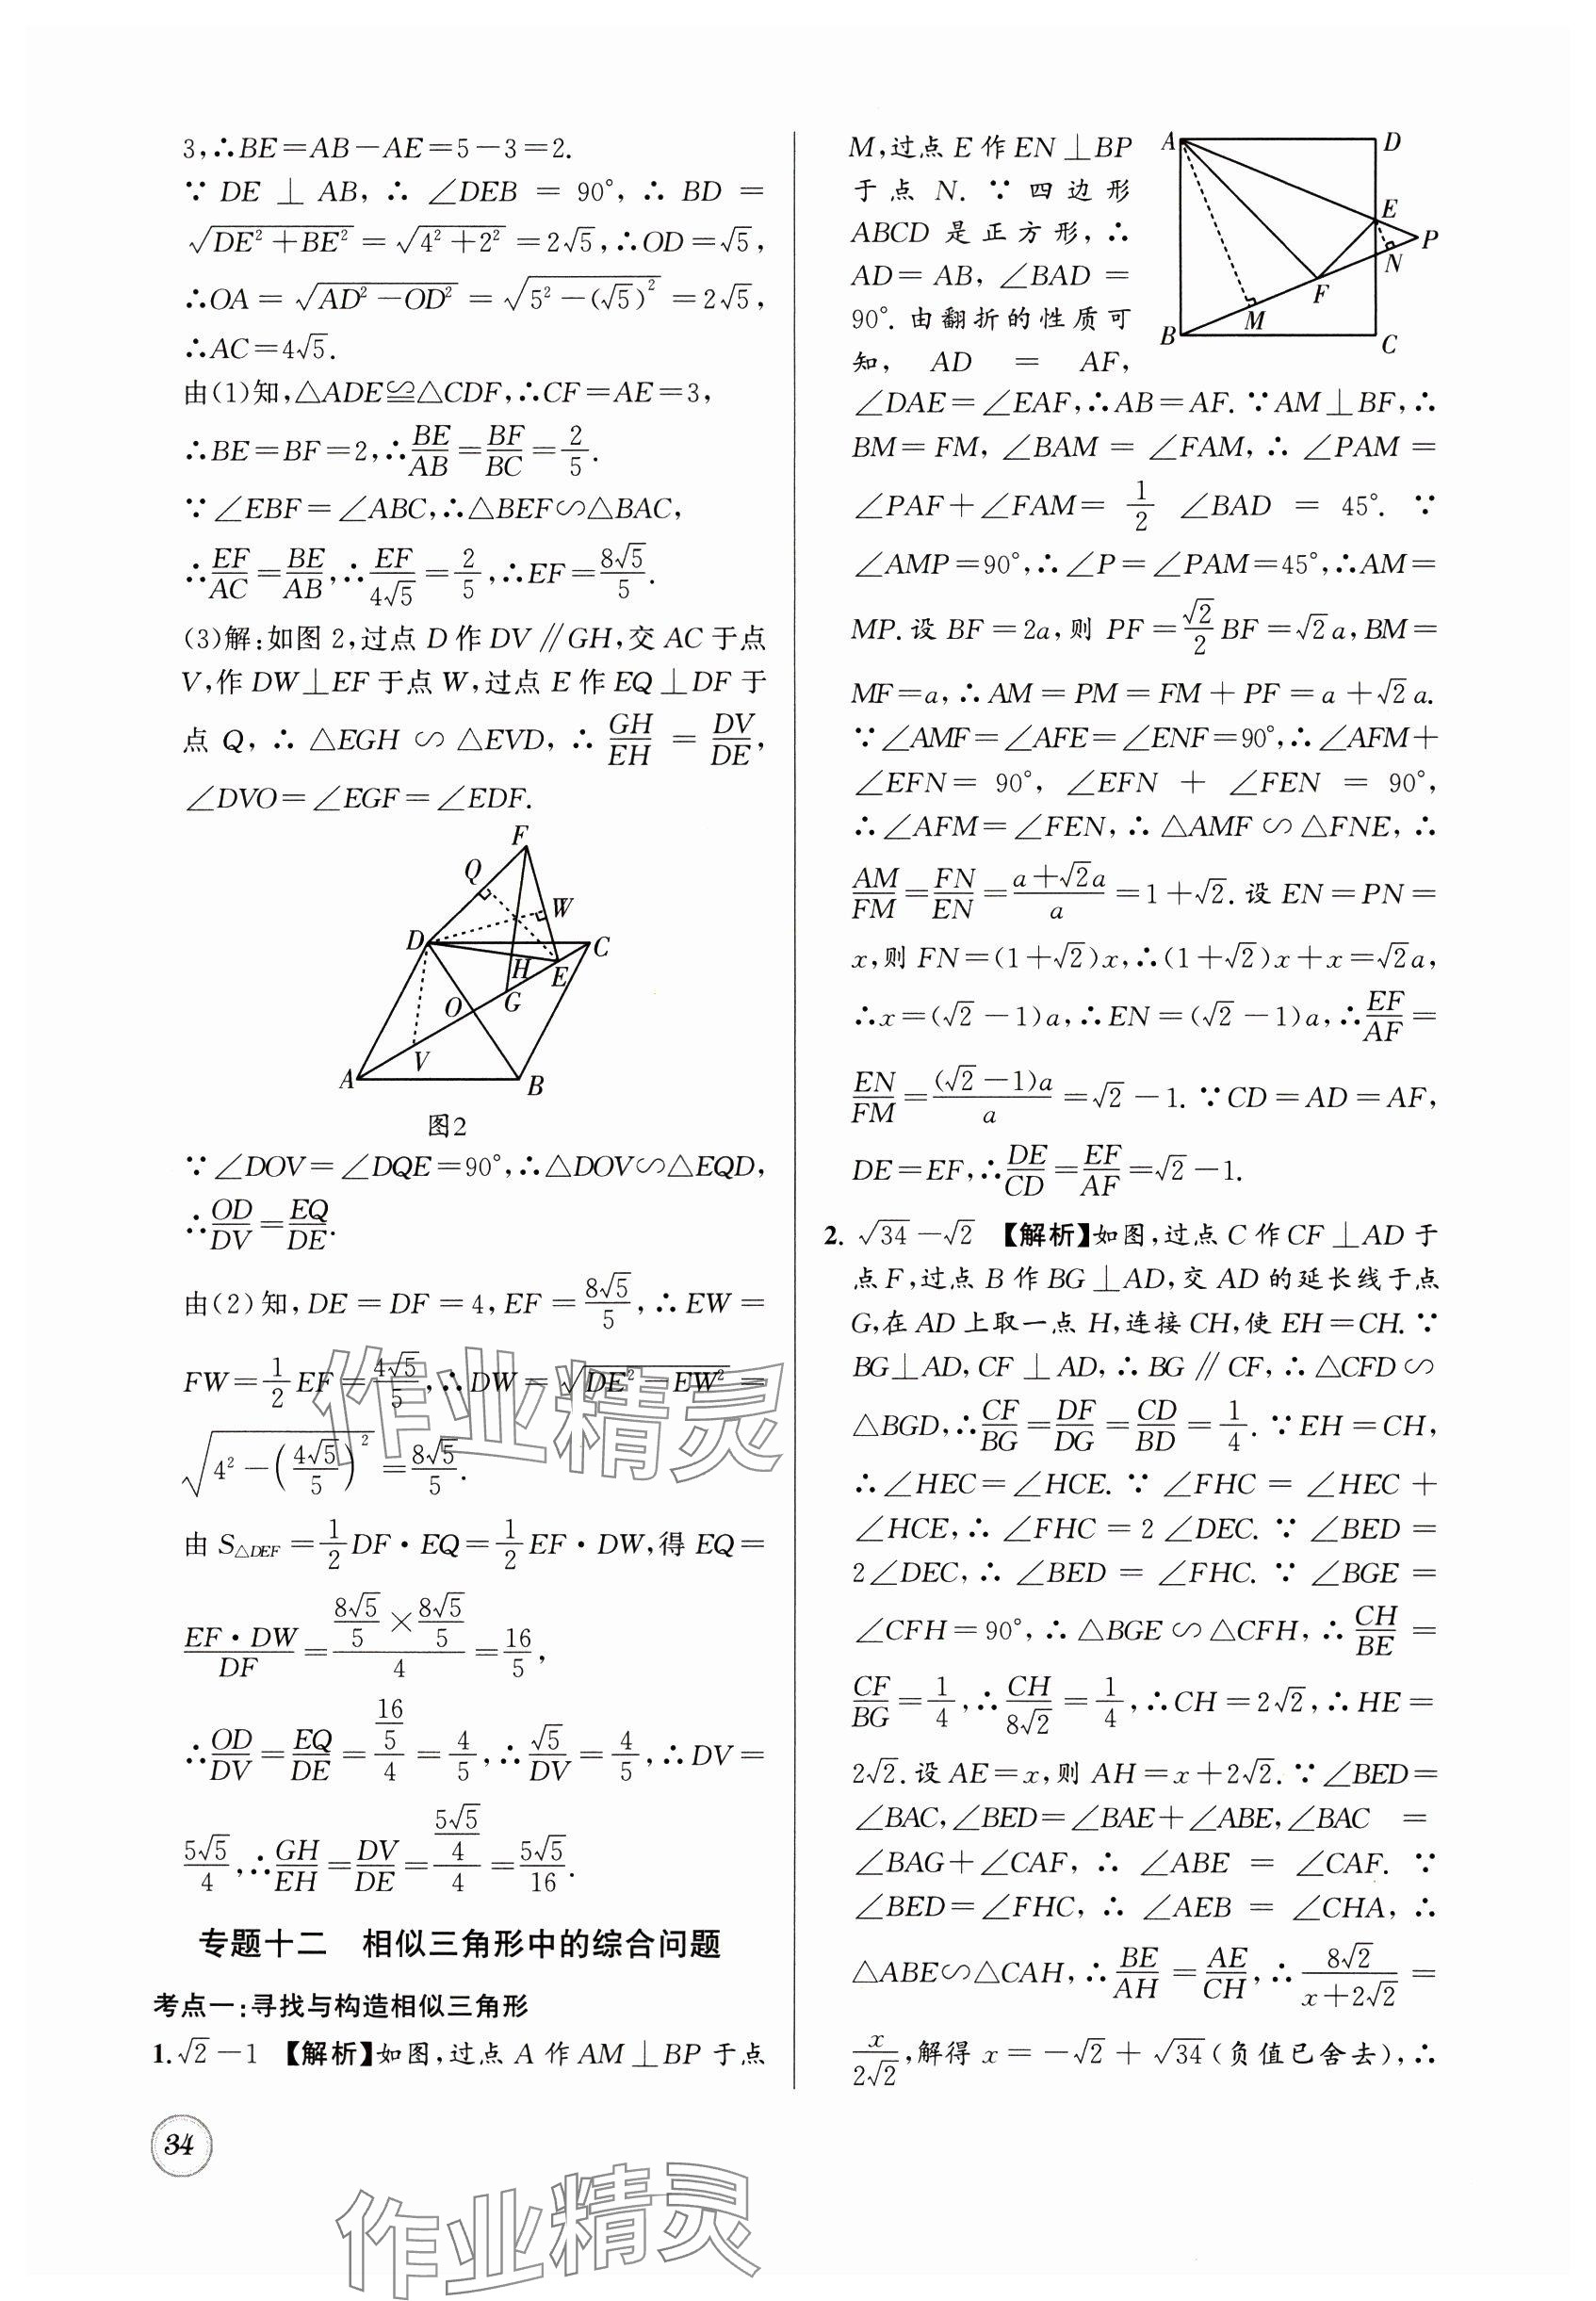 3,∴BE=AB-AE=5-3=2.
∵ DE ⊥ AB, ∴ ∠DEB = 90°, ∴ BD =
√(DE²+BE²)=√(4²+2²)=2√5,∴OD=√5,
∴OA=√(AD²-OD²)=√(5²-(√5)²)=2√5,
∴AC=4√5.
由(1)知,△ADE≌△CDF,∴CF=AE=3,
∴BE=BF=2,∴BE/AB=BF/BC=2/5.
∵∠EBF=∠ABC,∴△BEF∽△BAC,
∴EF/AC=BE/AB,∴EF/(4√5)=2/5,∴EF=8√5/5.
(3)解:如图2,过点D作DV∥GH,交AC于点
V,作DW⊥EF于点W,过点E作EQ⊥DF于
点Q,∴△EGH∽△EVD,∴GH/EH=DV/DE,
∠DVO=∠EGF=∠EDF.
F
Q
W
D
C
H
E
O
G
V
A
B
图2
∵∠DOV=∠DQE=90°,∴△DOV∽△EQD,
∴OD/DV=EQ/DE.
由(2)知,DE=DF=4,EF=8√5/5,∴EW=
FW=1/2 EF=4√5/5,∴DW=√(DE²-EW²)=
√(4²-(4√5/5)²)=8√5/5.
由S△DEF=1/2 DF·EQ=1/2 EF·DW,得EQ=
EF·DW/DF=(8√5/5×8√5/5)/4=16/5,
∴OD/DV=EQ/DE=(16/5)/4=4/5,∴√5/DV=4/5,∴DV=
5√5/4,∴GH/EH=DV/DE=(5√5/4)/4=5√5/16.
专题十二 相似三角形中的综合问题
考点一:寻找与构造相似三角形
1.√2-1 【解析】如图,过点A作AM⊥BP于点
34
M,过点E作EN⊥BP
于点N.∵四边形
ABCD是正方形,∴
AD=AB,∠BAD=
90°.由翻折的性质可
知,AD=AF,
A
D
E
P
N
F
M
B
C
∠DAE=∠EAF,∴AB=AF.∵AM⊥BF,∴
BM=FM,∠BAM=∠FAM,∴∠PAM=
∠PAF+∠FAM=1/2∠BAD=45°.∵
∠AMP=90°,∴∠P=∠PAM=45°,∴AM=
MP.设BF=2a,则PF=√2/2 BF=√2a,BM=
MF=a,∴AM=PM=FM+PF=a+√2a.
∵∠AMF=∠AFE=∠ENF=90°,∴∠AFM+
∠EFN=90°,∠EFN+∠FEN=90°,
∴∠AFM=∠FEN,∴△AMF∽△FNE,∴
AM/FM=FN/EN=(a+√2a)/a=1+√2.设EN=PN=
x,则FN=(1+√2)x,∴(1+√2)x+x=√2a,
∴x=(√2-1)a,∴EN=(√2-1)a,∴EF/AF=
EN/FM=(√2-1)a/a=√2-1.∵CD=AD=AF,
DE=EF,∴DE/CD=EF/AF=√2-1.
2. √34-√2 【解析】如图,过点C作CF⊥AD于
点F,过点B作BG⊥AD,交AD的延长线于点
G,在AD上取一点H,连接CH,使EH=CH.∵
BG⊥AD,CF⊥AD,∴BG∥CF,∴△CFD∽
△BGD,∴CF/BG=DF/DG=CD/BD=1/4.∵EH=CH,
∴∠HEC=∠HCE.∵∠FHC=∠HEC+
∠HCE,∴∠FHC=2∠DEC.∵∠BED=
2∠DEC,∴∠BED=∠FHC.∵∠BGE=
∠CFH=90°,∴△BGE∽△CFH,∴CH/BE=
CF/BG=1/4,∴CH/(8√2)=1/4,∴CH=2√2,∴HE=
2√2.设AE=x,则AH=x+2√2.∵∠BED=
∠BAC,∠BED=∠BAE+∠ABE,∠BAC=
∠BAG+∠CAF,∴∠ABE=∠CAF.∵
∠BED=∠FHC,∴∠AEB=∠CHA,∴
△ABE∽△CAH,∴BE/AH=AE/CH,∴8√2/(x+2√2)=
x/(2√2),解得x=-√2+√34(负值已舍去),∴
作业精灵
作业精灵